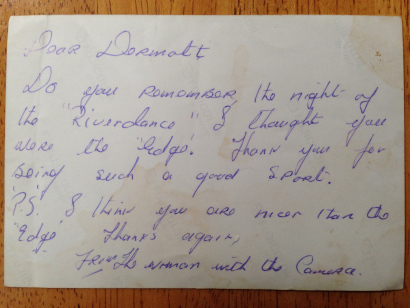 Dear Dermott,
Do you remember, the night of
the "Riverdance" & thought you
were the "Edge". Thank you for
being such a good sport.
P.S. I think you are nicer than the
"Edge" Thanks again,
From the woman with the Camera.